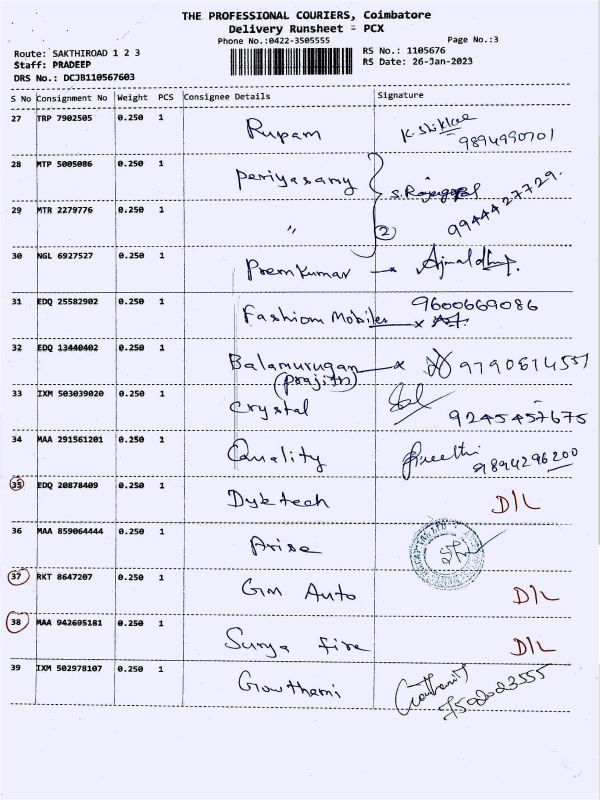 THE PROFESSIONAL COURIERS, Coimbatore
Delivery Runsheet - PCX
Phone No.:0422-3505555
Page No.:3
Route: SAKTHIROAD 1 2 3
RS No.: 1105676
Staff: PRADEEP
RS Date: 26-Jan-2023
DRS No.: DCJB110567603
S No Consignment No Weight PCS Consignee Details Signature
27 TRP 7902505 0.250 1 Rupam
9894990701
28 MTP 5005086 0.250 1 Periyasamy
29 MTR 2279776 0.250 1 〃 2 9944427729
30 NGL 6927527 0.250 1 Premkumar
31 EDQ 25582902 0.250 1 Fashion Mobiles 9600669086
32 EDQ 13440402 0.250 1 Balamurugan
(Prajith)
33 IXM 503039020 0.250 1 Crystal
9245457675
34 MAA 291561201 0.250 1 Quality Preethi
9894296200
35 EDQ 20878409 0.250 1 Dyktech D/L
36 MAA 859064444 0.250 1 Arise
37 RKT 8647207 0.250 1 GM Auto D/L
38 MAA 942695181 0.250 1 Surya fire D/L
39 IXM 502978107 0.250 1 Gowthami
7502023555